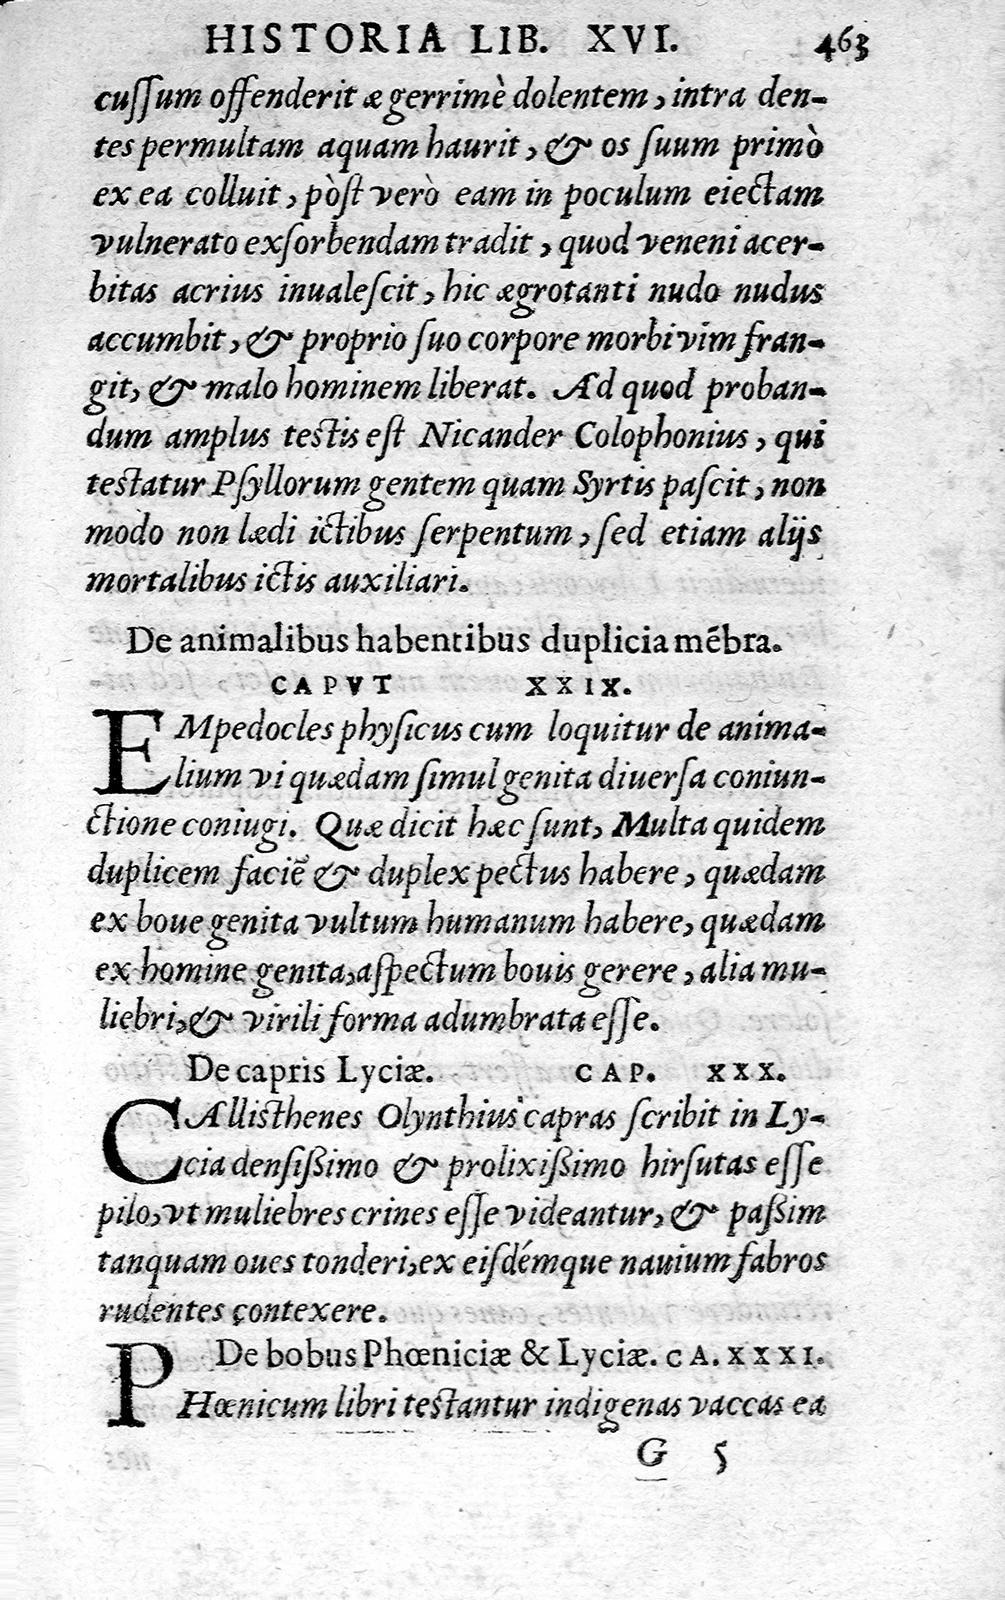 HISTORIA LIB. XVI. 463
cuſſum offenderit ægerrimè dolentem, intra den-
tes permultam aquam haurit, & os ſuum primò
ex ea colluit, pòſt verò eam in poculum eiectam
vulnerato exſorbendam tradit, quod veneni acer-
bitas acrius inualeſcit, hic ægrotanti nudo nudus
accumbit, & proprio ſuo corpore morbi vim fran-
git, & malo hominem liberat. Ad quod proban-
dum amplus teſtis eſt Nicander Colophonius, qui
teſtatur Pſyllorum gentem quam Syrtis paſcit, non
modo non lædi ictibus ſerpentum, ſed etiam alijs
mortalibus ictis auxiliari.
De animalibus habentibus duplicia mẽbra.
CAPVT XXIX.
EMpedocles phyſicus cum loquitur de anima-
lium vi quædam ſimul genita diuerſa coniun-
ctione coniugi. Quæ dicit hæc ſunt, Multa quidem
duplicem faciẽ & duplex pectus habere, quædam
ex boue genita vultum humanum habere, quædam
ex homine genita, aſpectum bouis gerere, alia mu-
liebri, & virili forma adumbrata eſſe.
De capris Lyciæ. CAP. XXX.
CAlliſthenes Olynthius capras ſcribit in Ly-
cia denſiſſimo & prolixiſſimo hirſutas eſſe
pilo, vt muliebres crines eſſe videantur, & paſſim
tanquam oues tonderi, ex eiſdémque nauium fabros
rudentes contexere.
De bobus Phœniciæ & Lyciæ. CA. XXXI.
PHœnicum libri teſtantur indigenas vaccas ea
G 5